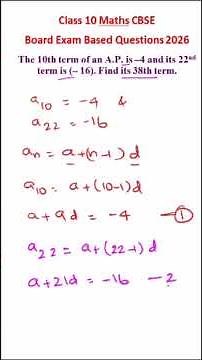 Class 10 Maths CBSE
Board Exam Based Questions 2026
The 10th term of an A.P. is –4 and its 22nd
term is (– 16). Find its 38th term.
a10 = -4 &
a22 = -16
an = a+(n-1) d
a10 = a+(10-1)d
a+9d = -4 — ①
a22 = a+(22-1)d
a+21d = -16 — 2